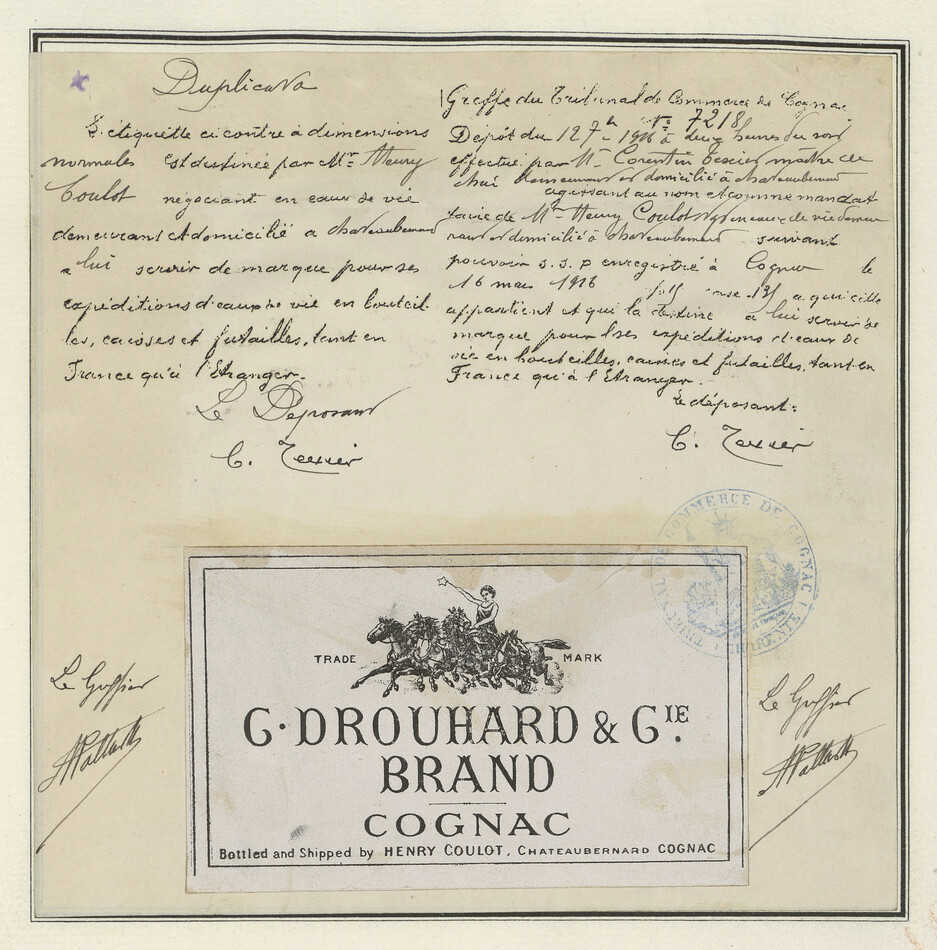 Duplicata
L'étiquette ci contre à dimensions
normales est destinée par Mr Henry
Coulot négociant en eaux de vie
demeurant et domicilié a chateaubernard
a lui servir de marque pour ses
expéditions d'eaux de vie en bouteil-
les, caisses et futailles, tant en
France qu'à l'Etranger.
Le Déposant
C. Texier
Greffe du Tribunal de Commerce de Cognac
No 7218
Dépôt du 1916 à deux heures du soir
effectué par Mr Corentin Texier maître de
chai demeurant et domicilié à chateaubernard
agissant au nom et comme mandat
taire de Mr Henry Coulot négt en eaux de vie demeu
rant et domicilié à chateaubernard suivant
pouvoir s.s.p enregistré à Cognac le
16 mars 1916 case 131 a qui elle
appartient et qui la destine à lui servir de
marque pour ses expéditions d'eaux de
vie en bouteilles, caisses et futailles, tant en
France qu'à l'Etranger.
Le déposant:
C. Texier
TRIBUNAL DE COMMERCE DE COGNAC
CHARENTE
Le Greffier
Le Greffier
TRADE MARK
C. DROUHARD & CIE.
BRAND
COGNAC
Bottled and Shipped by HENRY COULOT, CHATEAUBERNARD COGNAC